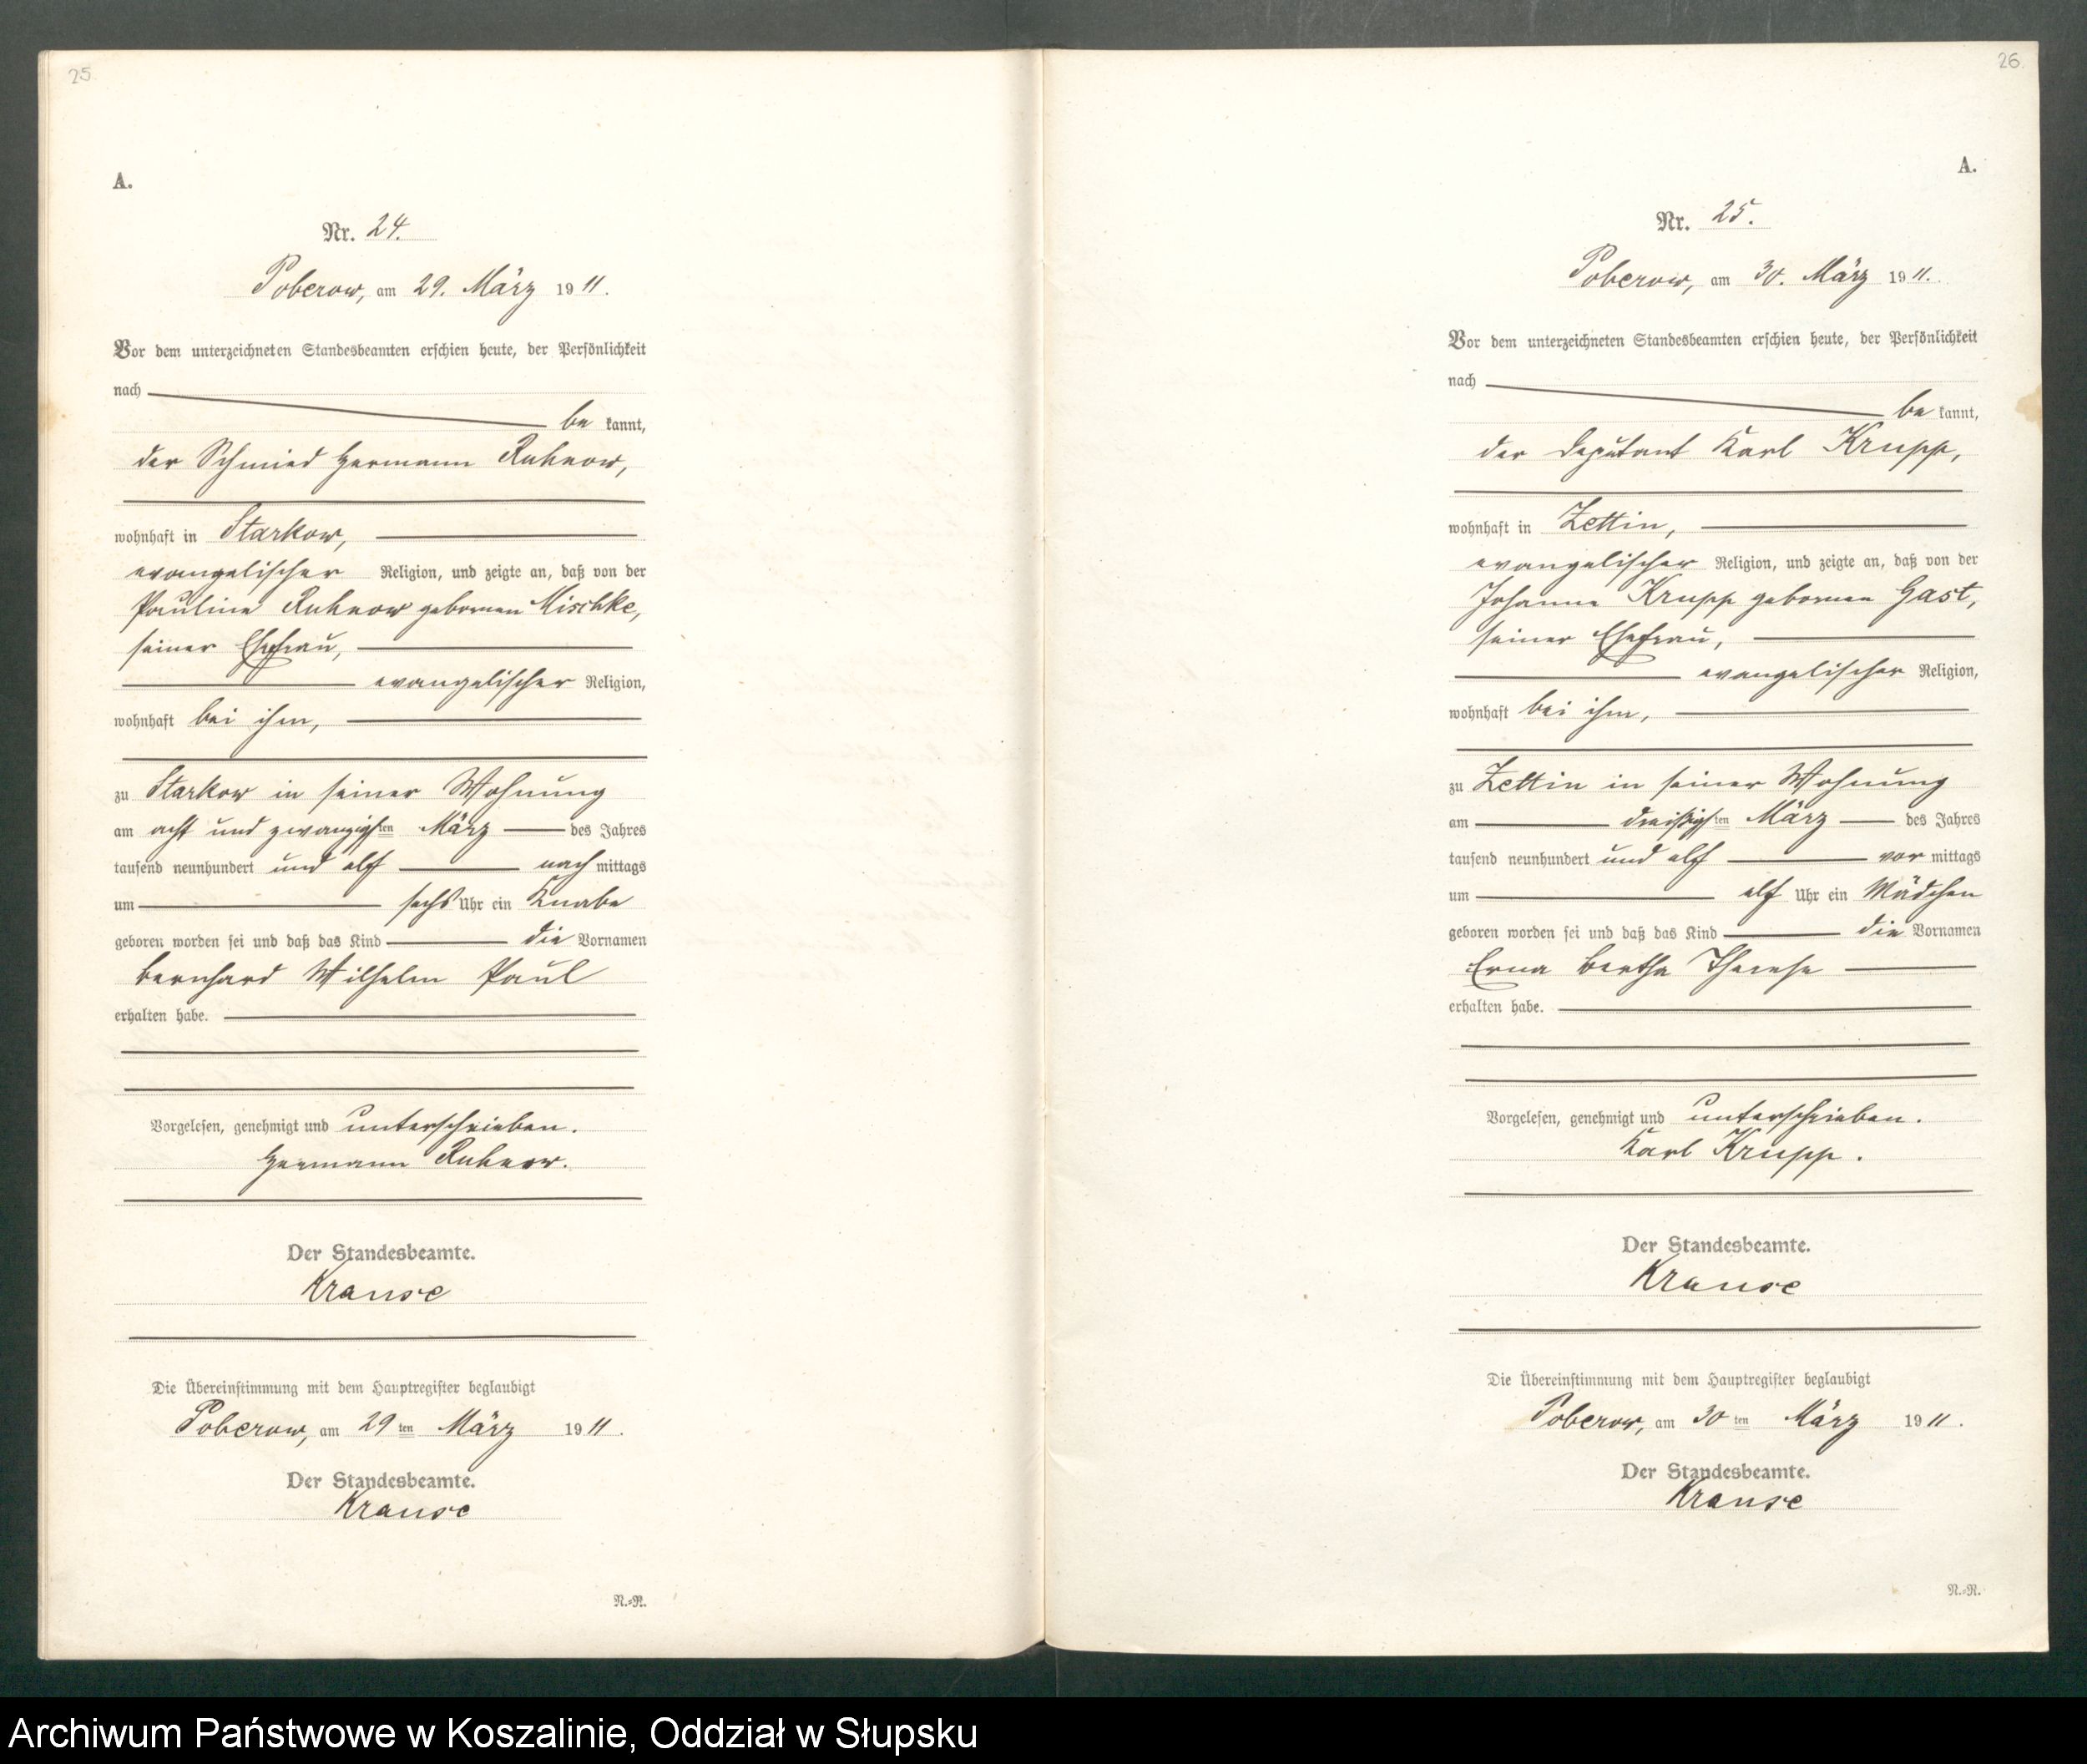 25
A.
Nr. 24.
Poberow, am 29. März 1911.
Vor dem unterzeichneten Standesbeamten erschien heute, der Persönlichkeit
nach
be kannt,
der Schmied Hermann Ruhnow,
wohnhaft in Starkow,
evangelischer Religion, und zeigte an, daß von der
Pauline Ruhnow gebornen Mischke,
seiner Ehefrau,
evangelischer Religion,
wohnhaft bei ihm,
zu Starkow in seiner Wohnung
am acht und zwanzigsten März des Jahres
tausend neunhundert und elf nach mittags
um sechs Uhr ein Knabe
geboren worden sei und daß das Kind die Vornamen
Bernhard Wilhelm Paul
erhalten habe.
Vorgelesen, genehmigt und unterschrieben.
Hermann Ruhnow.
Der Standesbeamte.
Krause
Die Übereinstimmung mit dem Hauptregister beglaubigt
Poberow, am 29 ten März 1911.
Der Standesbeamte.
Krause
N.-R.
26
A.
Nr. 25.
Poberow, am 30. März 1911.
Vor dem unterzeichneten Standesbeamten erschien heute, der Persönlichkeit
nach
be kannt,
der Deputant Karl Krupp,
wohnhaft in Zettin,
evangelischer Religion, und zeigte an, daß von der
Johanne Krupp gebornen Gast,
seiner Ehefrau,
evangelischer Religion,
wohnhaft bei ihm,
zu Zettin in seiner Wohnung
am dreißigsten März des Jahres
tausend neunhundert und elf vor mittags
um elf Uhr ein Mädchen
geboren worden sei und daß das Kind die Vornamen
Erna Bertha Therese
erhalten habe.
Vorgelesen, genehmigt und unterschrieben.
Karl Krupp.
Der Standesbeamte.
Krause
Die Übereinstimmung mit dem Hauptregister beglaubigt
Poberow, am 30 ten März 1911.
Der Standesbeamte.
Krause
N.-R.
Archiwum Państwowe w Koszalinie, Oddział w Słupsku